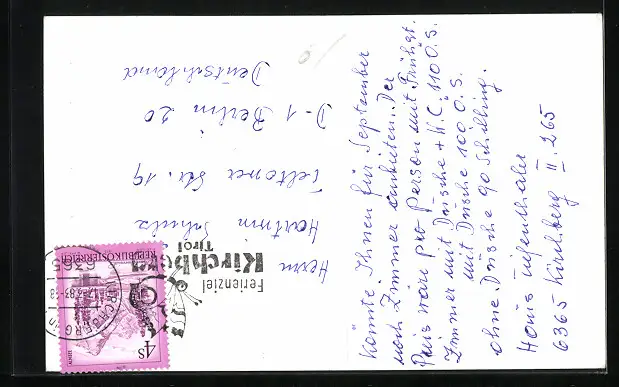 Könnte Ihnen für September
noch Zimmer anbieten. Der
Preis wäre pro Person mit Frühst.
Zimmer mit Dusche + W.C. 110 Ö.S.
mit Dusche 100 Ö.S.
ohne Dusche 90 Schilling.
Hans
6365 Kirchberg II 265
Herrn
Hartmin Schulz
Teltower Str. 19
D-1 Berlin 20
Deutschland
Ferienziel
Kirchberg
Tirol
REPUBLIK ÖSTERREICH
4 S
6365
KIRCHBERG